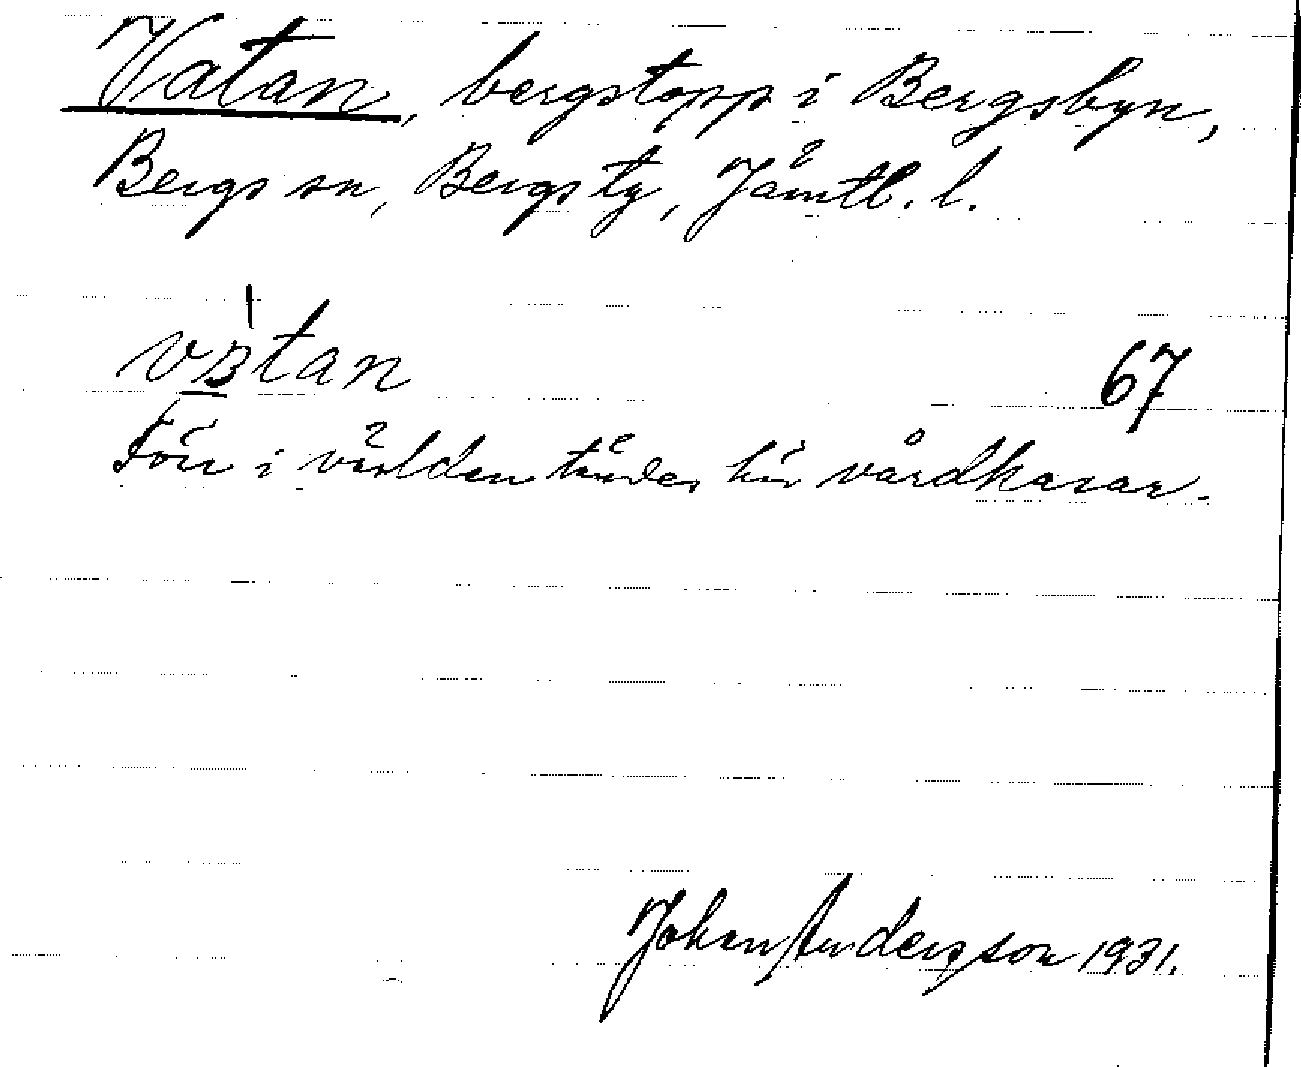 Vatan, bergstopp i Bergsbyn,
Bergs sn, Bergs tg, Jämtl. l.
vatan
67
Förr i världen tändes här vårdkasar.
Johan Andersson 1931.